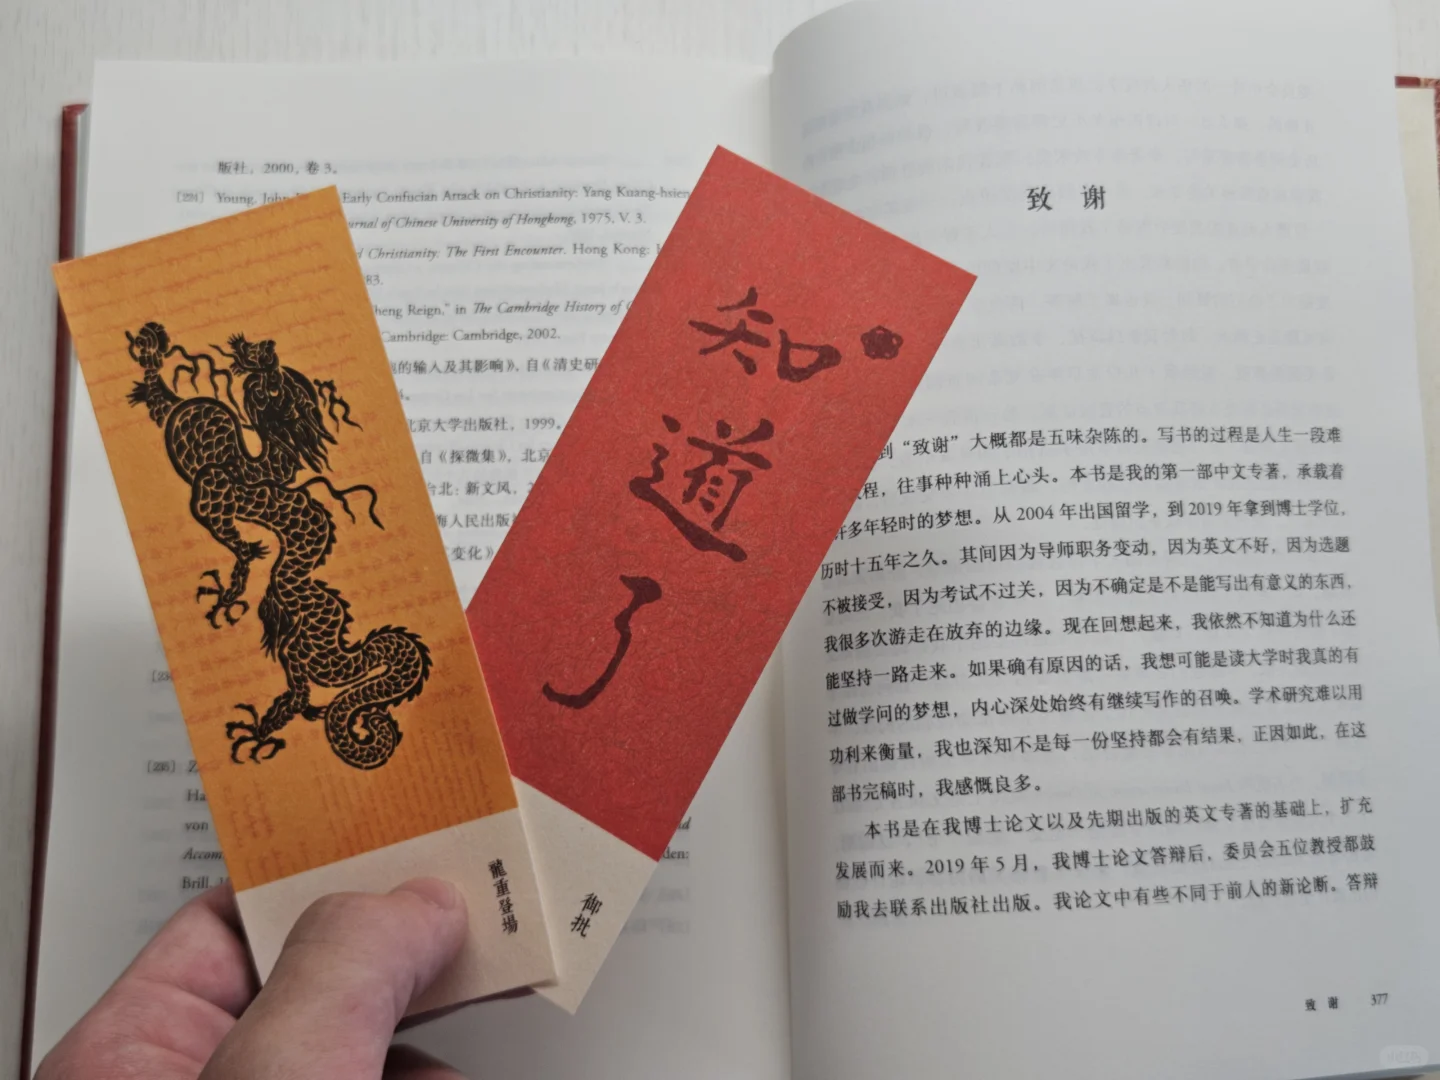 版社，2000，卷3。
[224] Young, John Early Confucian Attack on Christianity: Yang Kuang-hsien
Journal of Chinese University of Hongkong, 1975, V. 3.
Christianity: The First Encounter. Hong Kong:
83.
Reign," in The Cambridge History of
Cambridge: Cambridge, 2002.
的输入及其影响》，自《清史研
北京大学出版社，1999。
自《探微集》，北京
台北：新文风，
海人民出版社
变化》
[235] Z
Ha
von and
Accom den:
Brill,
龍重登場
知道了
御批
致谢
到“致谢”大概都是五味杂陈的。写书的过程是人生一段难
程，往事种种涌上心头。本书是我的第一部中文专著，承载着
许多年轻时的梦想。从2004年出国留学，到2019年拿到博士学位，
历时十五年之久。其间因为导师职务变动，因为英文不好，因为选题
不被接受，因为考试不过关，因为不确定是不是能写出有意义的东西，
我很多次游走在放弃的边缘。现在回想起来，我依然不知道为什么还
能坚持一路走来。如果确有原因的话，我想可能是读大学时我真的有
过做学问的梦想，内心深处始终有继续写作的召唤。学术研究难以用
功利来衡量，我也深知不是每一份坚持都会有结果，正因如此，在这
部书完稿时，我感慨良多。
本书是在我博士论文以及先期出版的英文专著的基础上，扩充
发展而来。2019年5月，我博士论文答辩后，委员会五位教授都鼓
励我去联系出版社出版。我论文中有些不同于前人的新论断。答辩
致谢 377